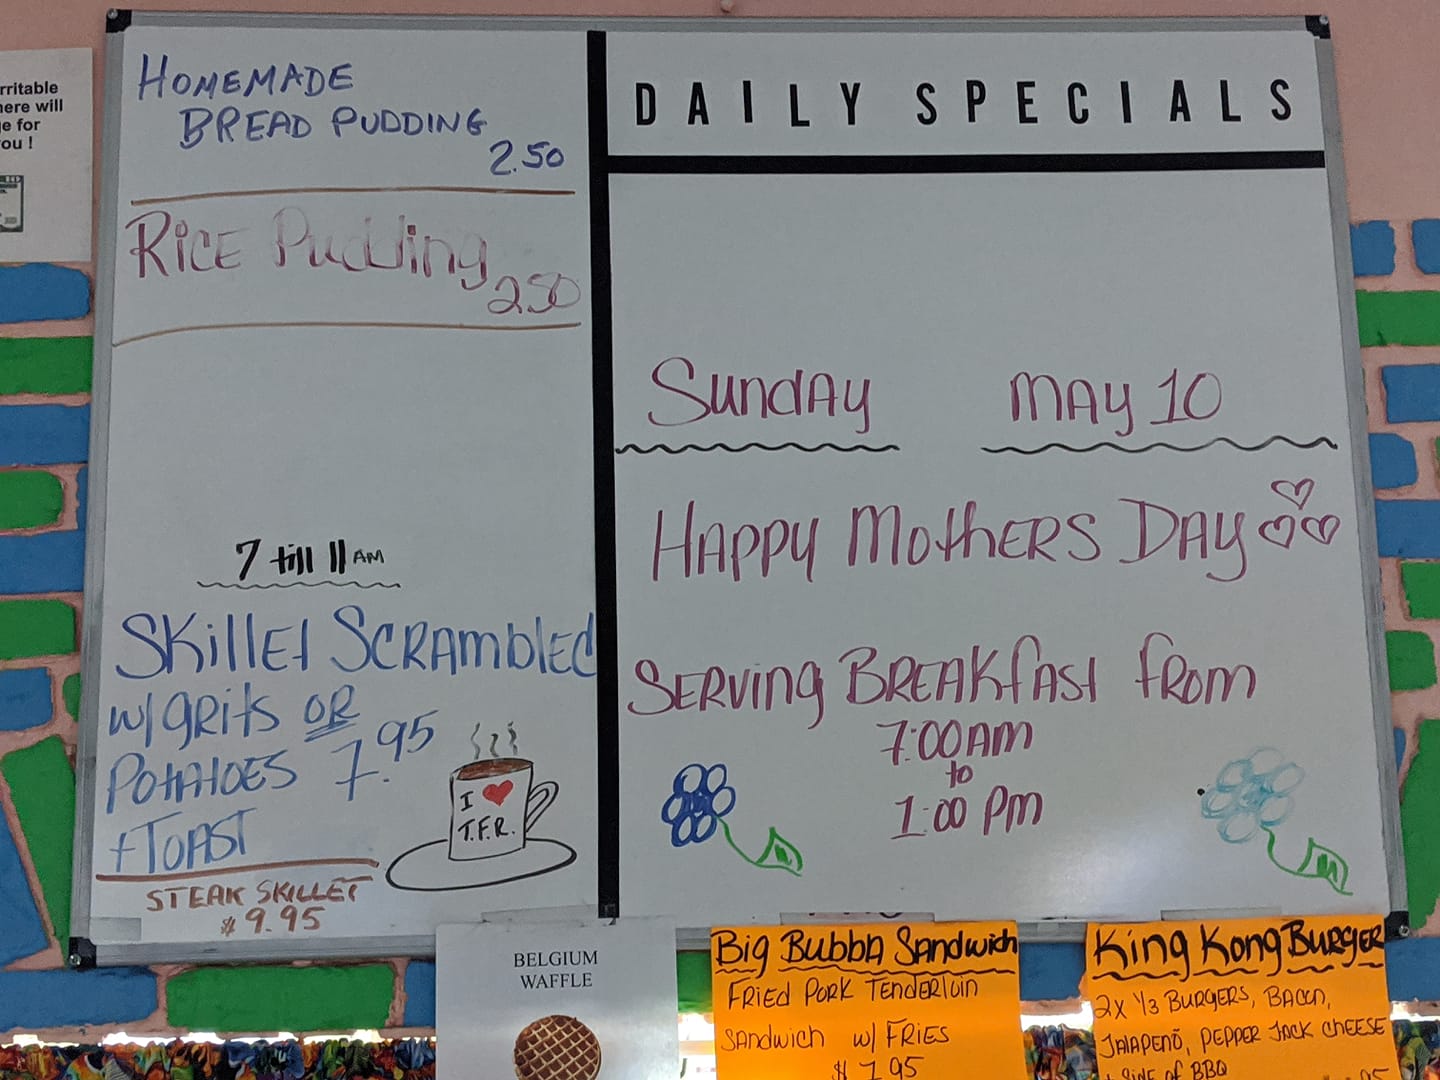 rritable
here will
e for
ou !
HOMEMADE
BREAD PUDDING
2.50
RICE Pudding
250
7 till 11 AM
SKillet SCRAmblED
w/ gRits OR
POTATOES 7.95
+ TOAST
I ❤
T.F.R.
STEAK SKILLET
$ 9.95
DAILY SPECIALS
SundAy MAY 10
HAPPY MothERS DAY
SERVing BREAKfAst fRom
7:00AM
to
1:00 PM
BELGIUM
WAFFLE
Big BubbA Sandwich
FRied PORK TENDERloin
Sandwich w/ FRIES
King Kong BURgER
2x 1/3 BURGERS, BACON,
JALAPEÑO, PEPPER JACK CHEESE
+ SidE of BBQ